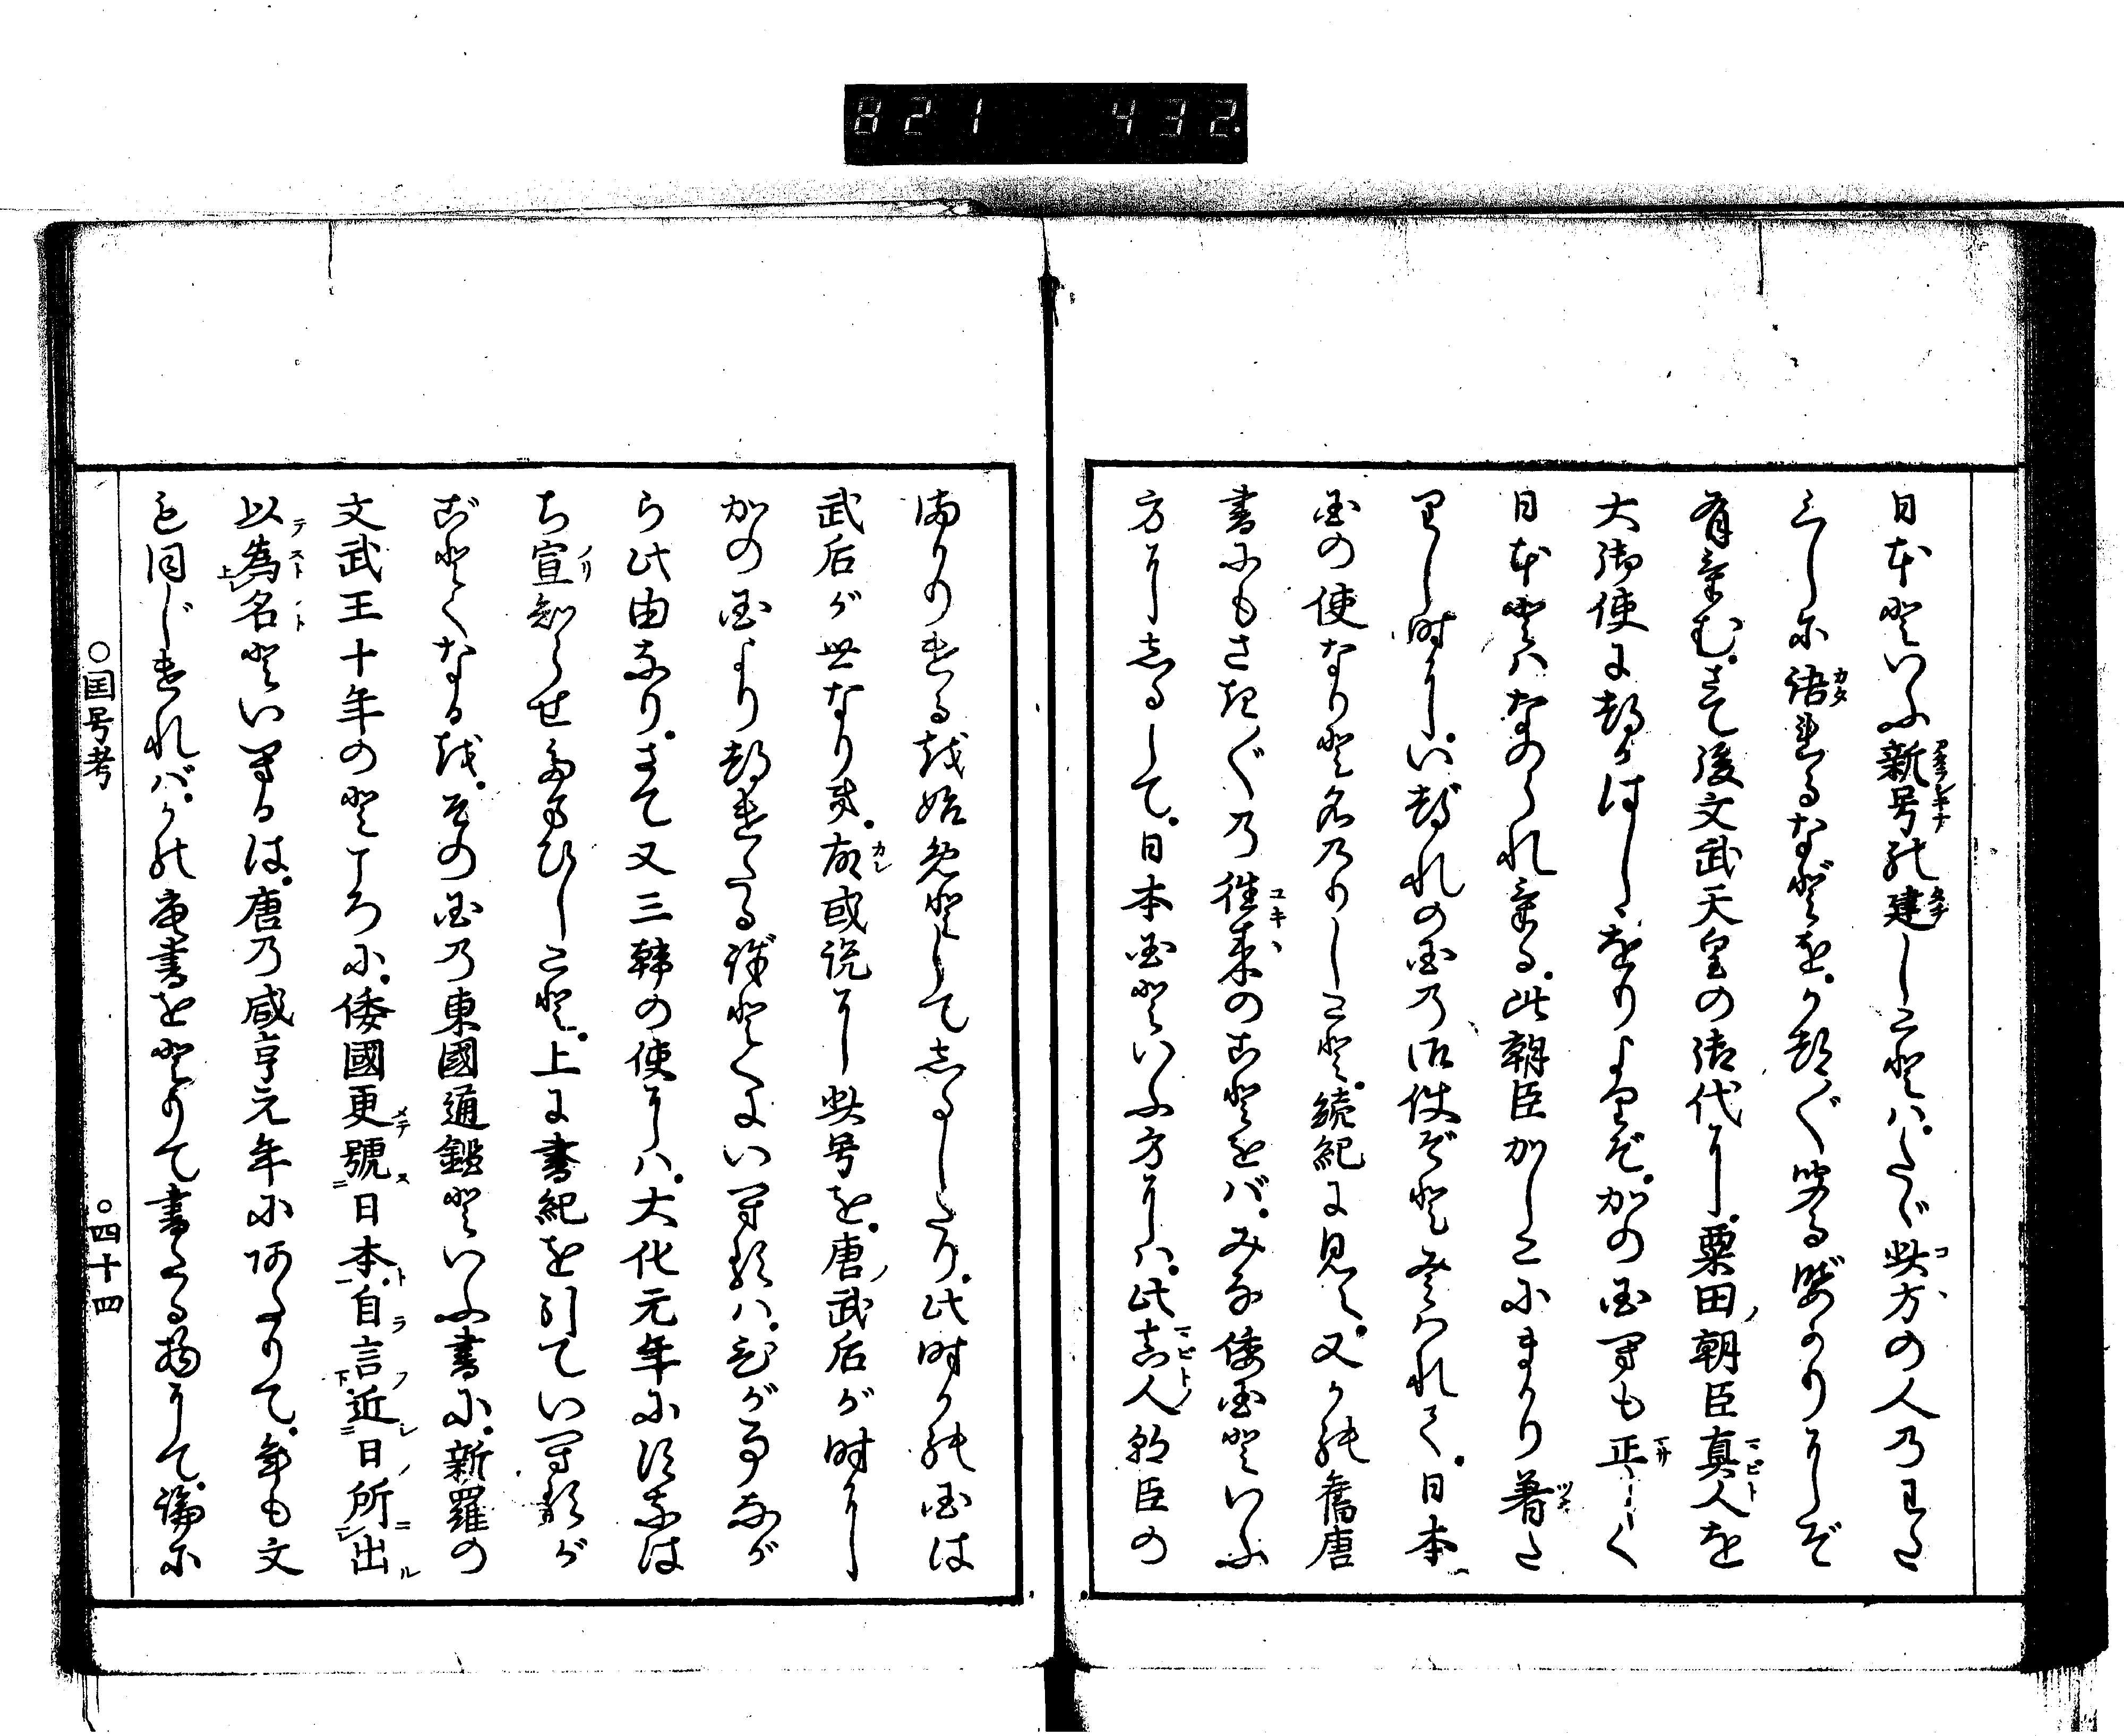 日本といふ新号の建しことハ、たゞ此方の人のわた
りしに語れるなどを、かつ〲聞るばかりにぞ
有けむ、さて後文武天皇の御代に、粟田朝臣真人を
大御使につかはしゝをりよりぞ、かの国へも正しく
日本とハなのられける、此朝臣かしこにまかり着た
りし時に、いづれの国の御使ぞととはれて、日本
国の使なりと名のりしこと、続紀に見ゆ、又かの舊唐
書にもさき〲の往来のことをバ、みな倭国といふ
方にしるして、日本国といふ方にハ、此真人朝臣の
まかりけるを始めとしてしるしたり、此時かの国は
武后が世なりき、故或説に此号を、唐武后が時に
かの国よりつけたるごとくにいへるハ、ひがことなが
ら此由なり、さて又三韓の使にハ、大化元年にすなは
ち宣知らせたまひしこと、上に書紀を引ていへるが
ごとくなるを、その国の東國通鑑といふ書に、新羅の
文武王十年のところに、倭國更號日本、自言近日所出
以為名といへるは、唐の咸亨元年にあたりて、年も文
も同じけれバ、かの唐書をとりて書たる物にて、論に
○国号考 ○四十四
821 432.